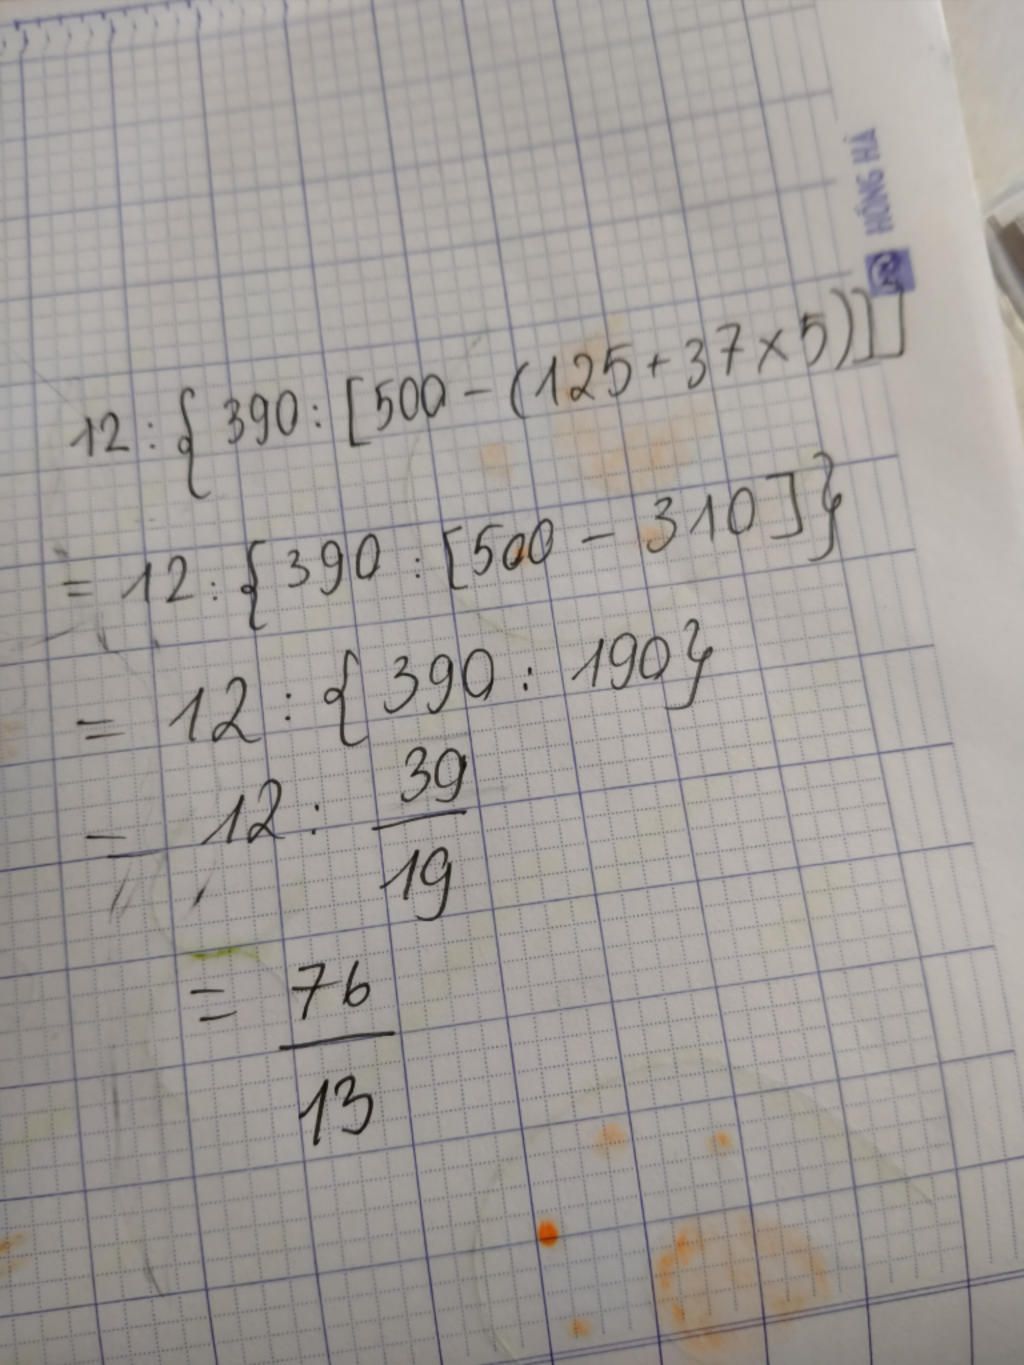 HỒNG HÀ
12 : { 390 : [500 - (125 + 37 × 5)]]
= 12 : { 390 : [500 - 310 ] }
= 12 : { 390 : 190 }
= 12 : 39/19
= 76/13